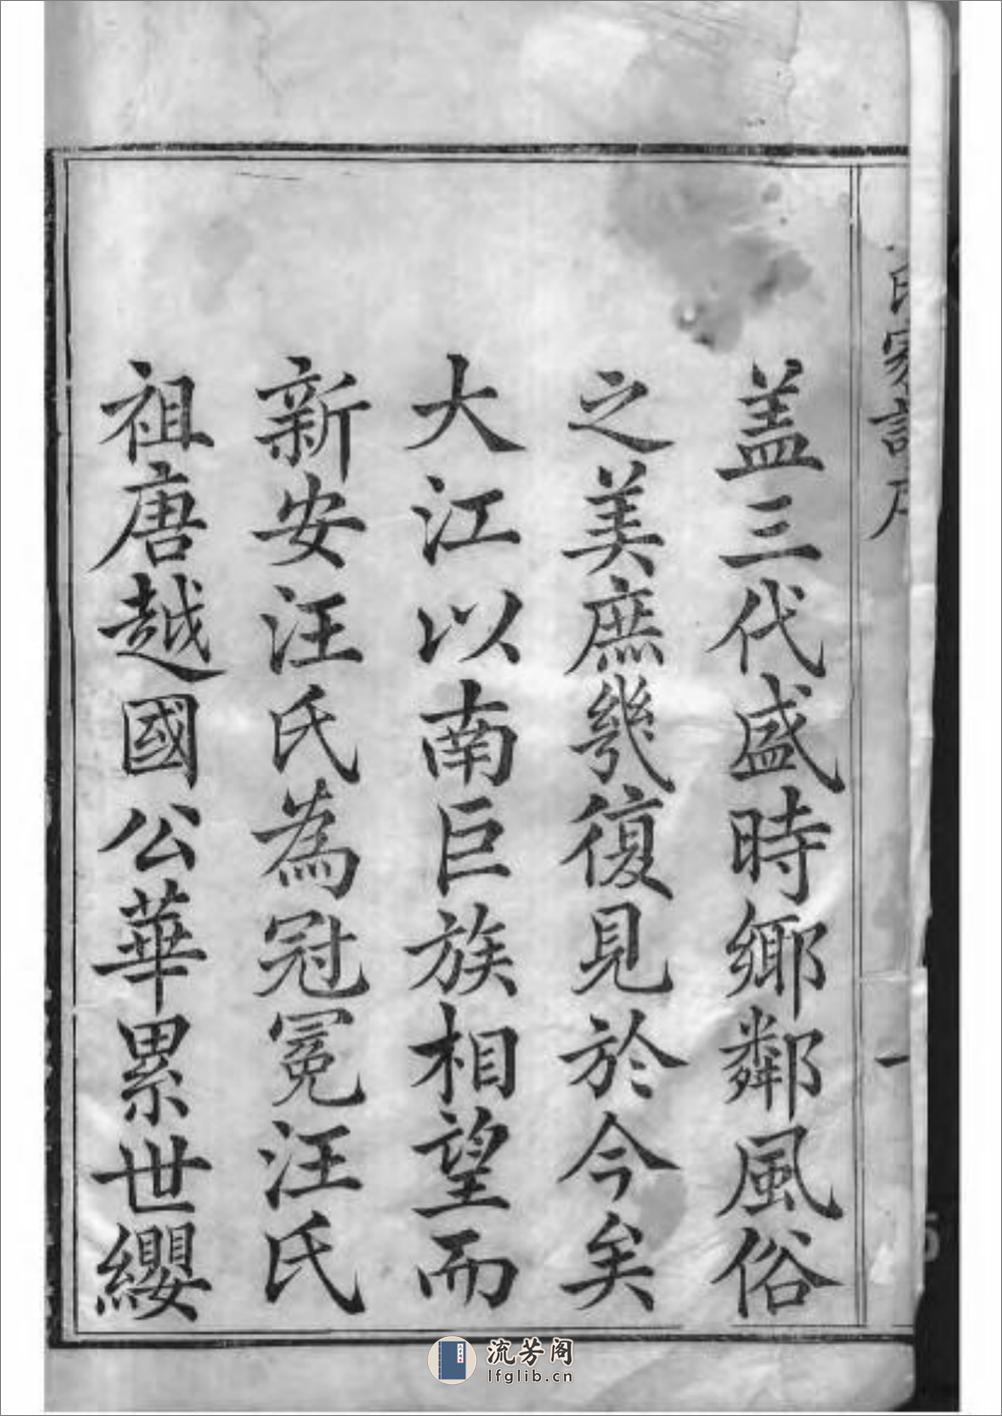 盖三代盛時鄉鄰風俗
之美庶幾復見於今矣
大江以南巨族相望而
新安汪氏為冠冕汪氏
祖唐越國公華累世纓
氏家
一
流芳阁
lfglib.cn